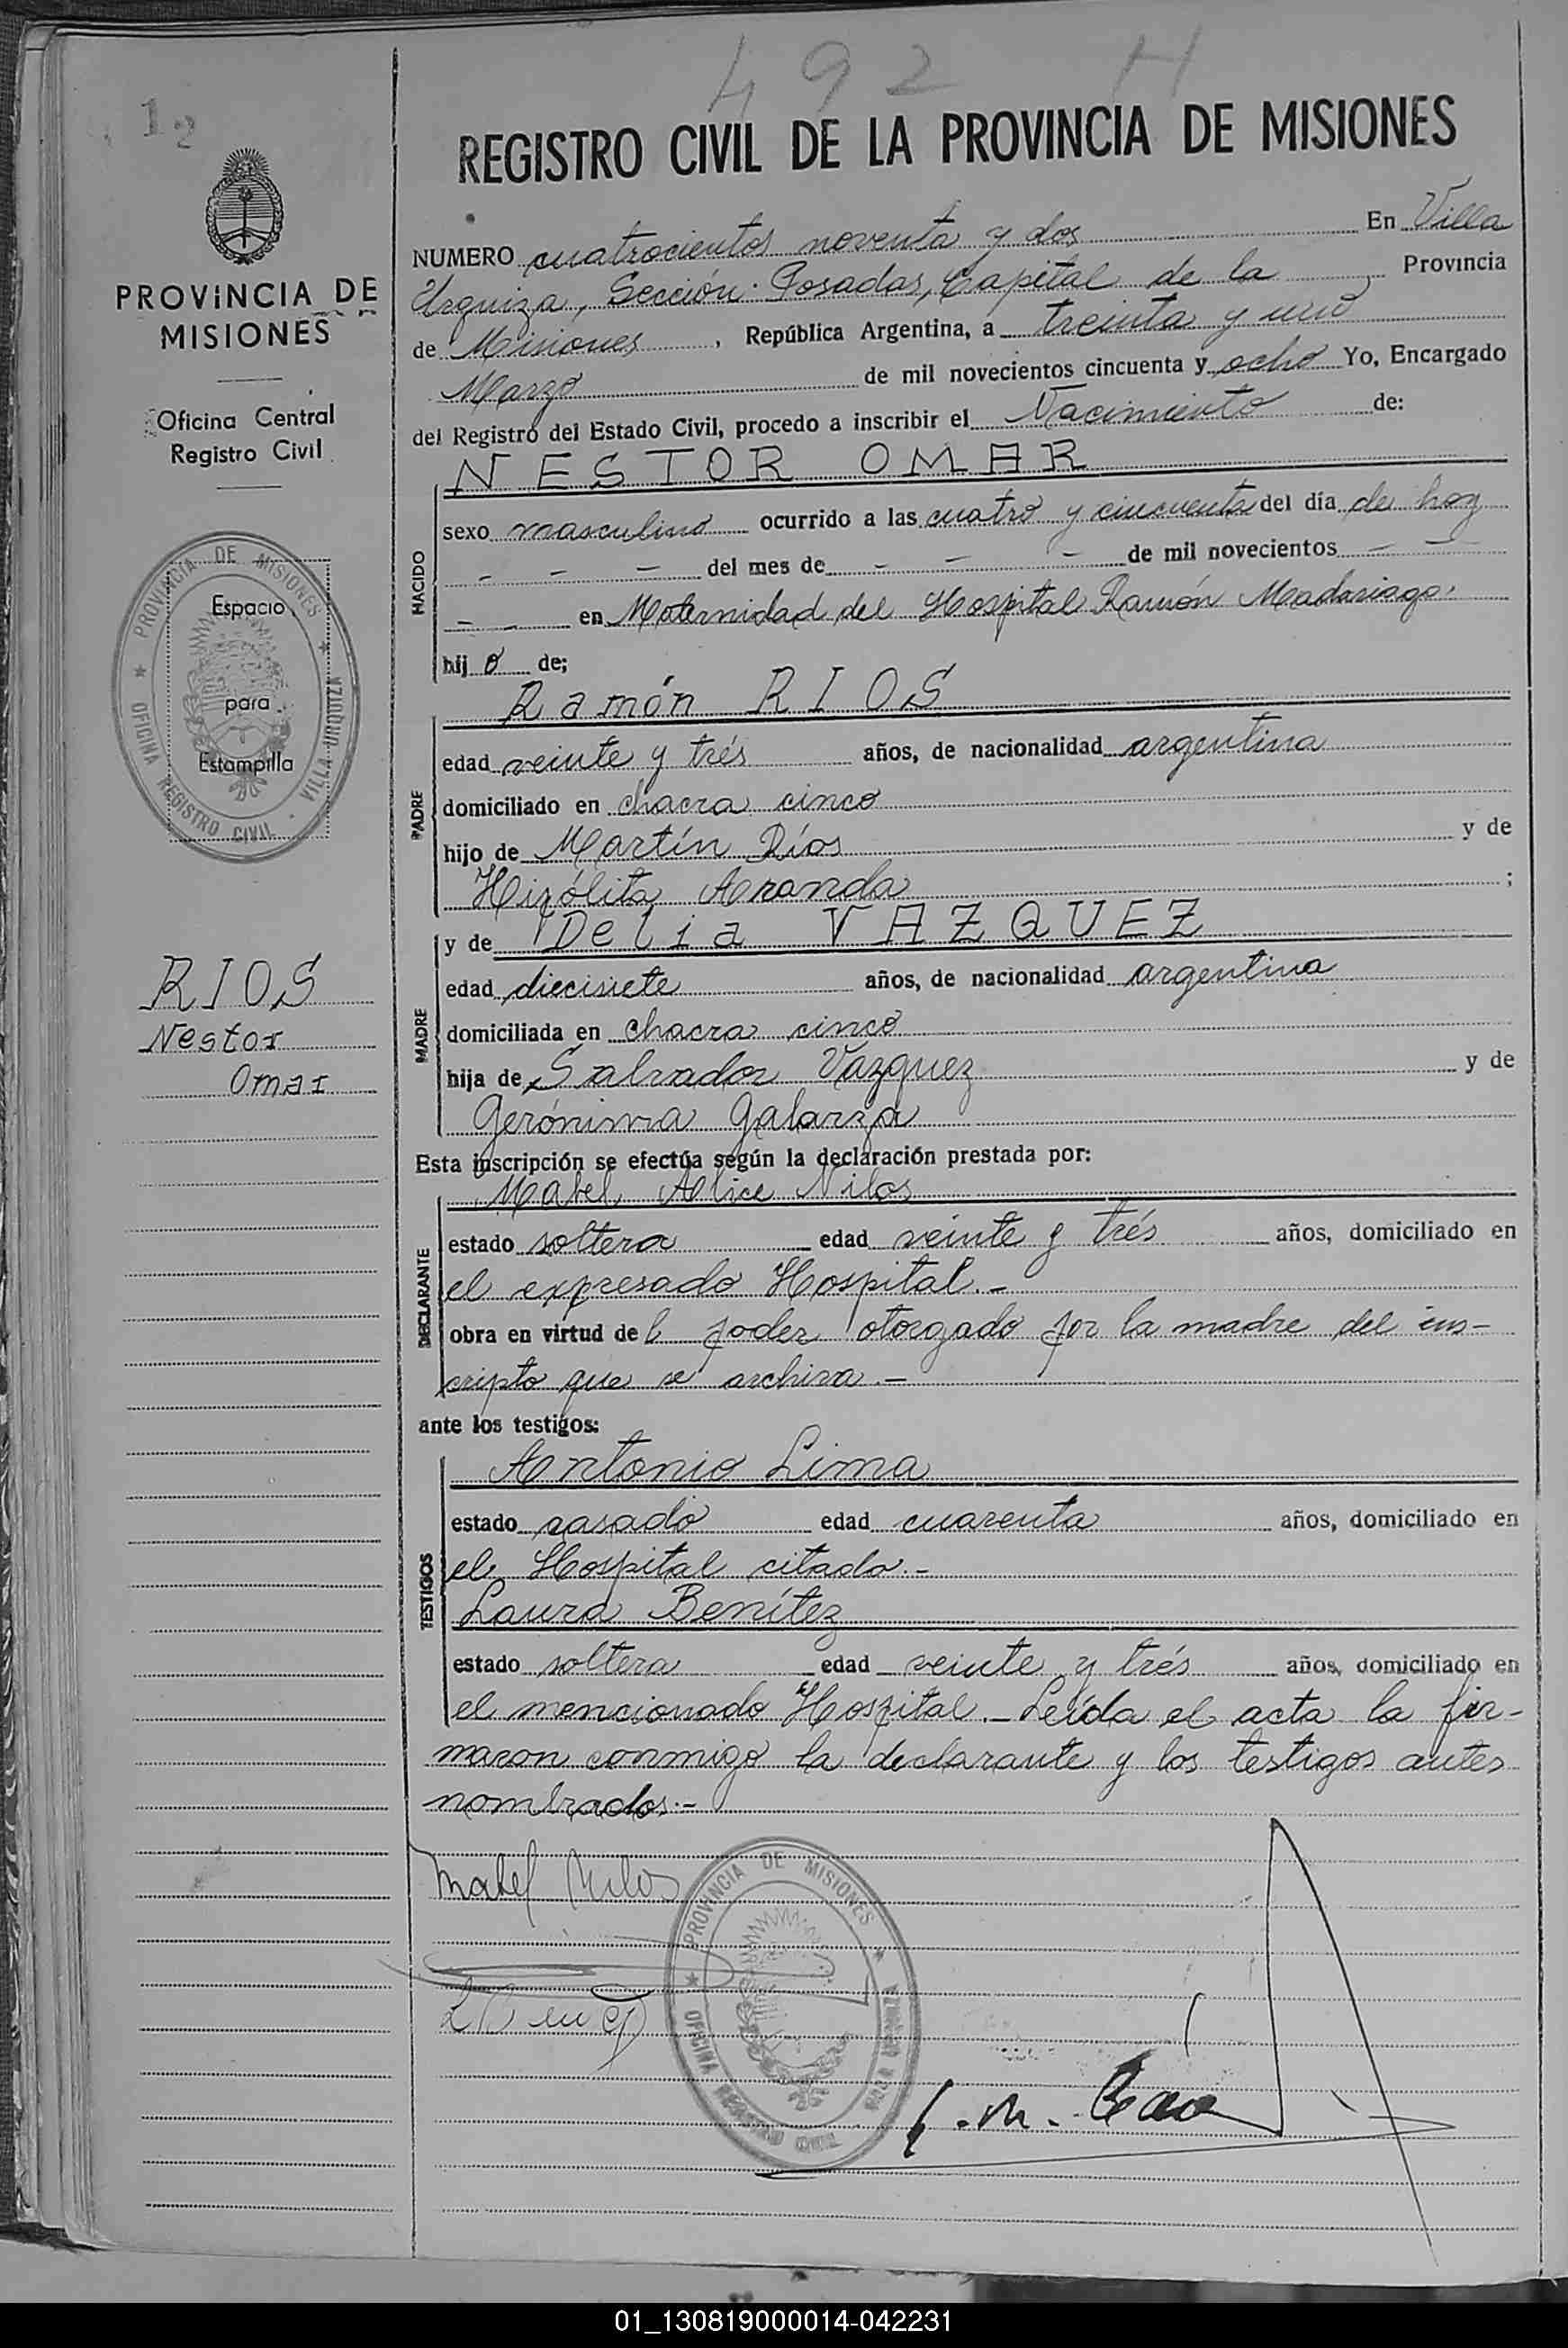 492 H
12
REGISTRO CIVIL DE LA PROVINCIA DE MISIONES
PROVINCIA DE
MISIONES
Oficina Central
Registro Civil
PROVINCIA DE MISIONES
OFICINA REGISTRO CIVIL - VILLA URQUIZA
Espacio
para
Estampilla
RIOS
Nestor
Omar
NUMERO cuatrocientos noventa y dos En Villa
Urquiza, Sección Posadas, Capital de la Provincia
de Misiones, República Argentina, a treinta y uno
Marzo de mil novecientos cincuenta y ocho Yo, Encargado
del Registro del Estado Civil, procedo a inscribir el Nacimiento de:
NESTOR OMAR
NACIDO
sexo masculino ocurrido a las cuatro y cincuenta del día de hoy
- - - del mes de - - - de mil novecientos - -
- - en Maternidad del Hospital Ramón Madariaga.
hij o de;
Ramón RIOS
PADRE
edad veinte y trés años, de nacionalidad argentina
domiciliado en chacra cinco
hijo de Martín Ríos y de
Hipólita Aranda ;
MADRE
y de Delia VAZQUEZ
edad diecisiete años, de nacionalidad argentina
domiciliada en chacra cinco
hija de Salvador Vazquez y de
Gerónima Galarza
Esta inscripción se efectúa según la declaración prestada por:
Mabel Alice Nilos
DECLARANTE
estado soltera edad veinte y trés años, domiciliado en
el expresado Hospital.-
obra en virtud del poder otorgado por la madre del ins-
cripto que se archiva.-
ante los testigos:
Antonio Lima
TESTIGOS
estado casado edad cuarenta años, domiciliado en
el Hospital citado.-
Laura Benítez
estado soltera edad veinte y trés años, domiciliado en
el mencionado Hospital.- Leída el acta la fir-
maron conmigo la declarante y los testigos antes
nombrados.-
Mabel Nilos
PROVINCIA DE MISIONES
OFICINA REGISTRO CIVIL
01_130819000014-042231